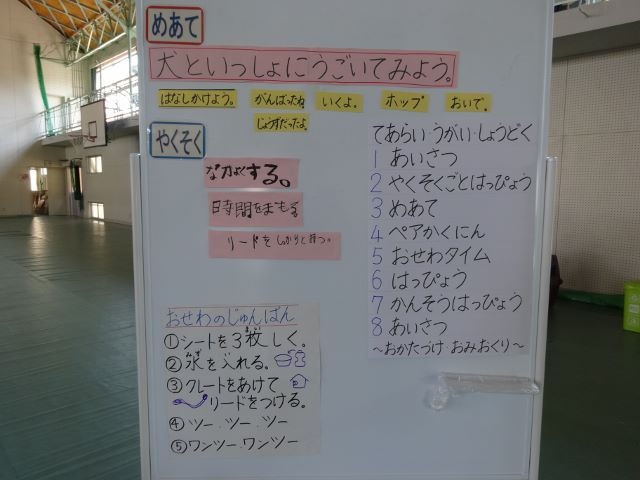 めあて
犬といっしょにうごいてみよう。
はなしかけよう。
がんばったね
いくよ。
ホップ
おいで。
じょうずだったよ。
やくそく
なかよくする。
時間をまもる
リードをしっかりと持つ。
てあらい・うがい・しょうどく
1 あいさつ
2 やくそくごとはっぴょう
3 めあて
4 ペアかくにん
5 おせわタイム
6 はっぴょう
7 かんそうはっぴょう
8 あいさつ
～おかたづけ おみおくり～
おせわのじゅんばん
①シートを3枚しく。
②水を入れる。
③クレートをあけて
リードをつける。
④ツー．ツー．ツー
⑤ワンツー．ワンツー